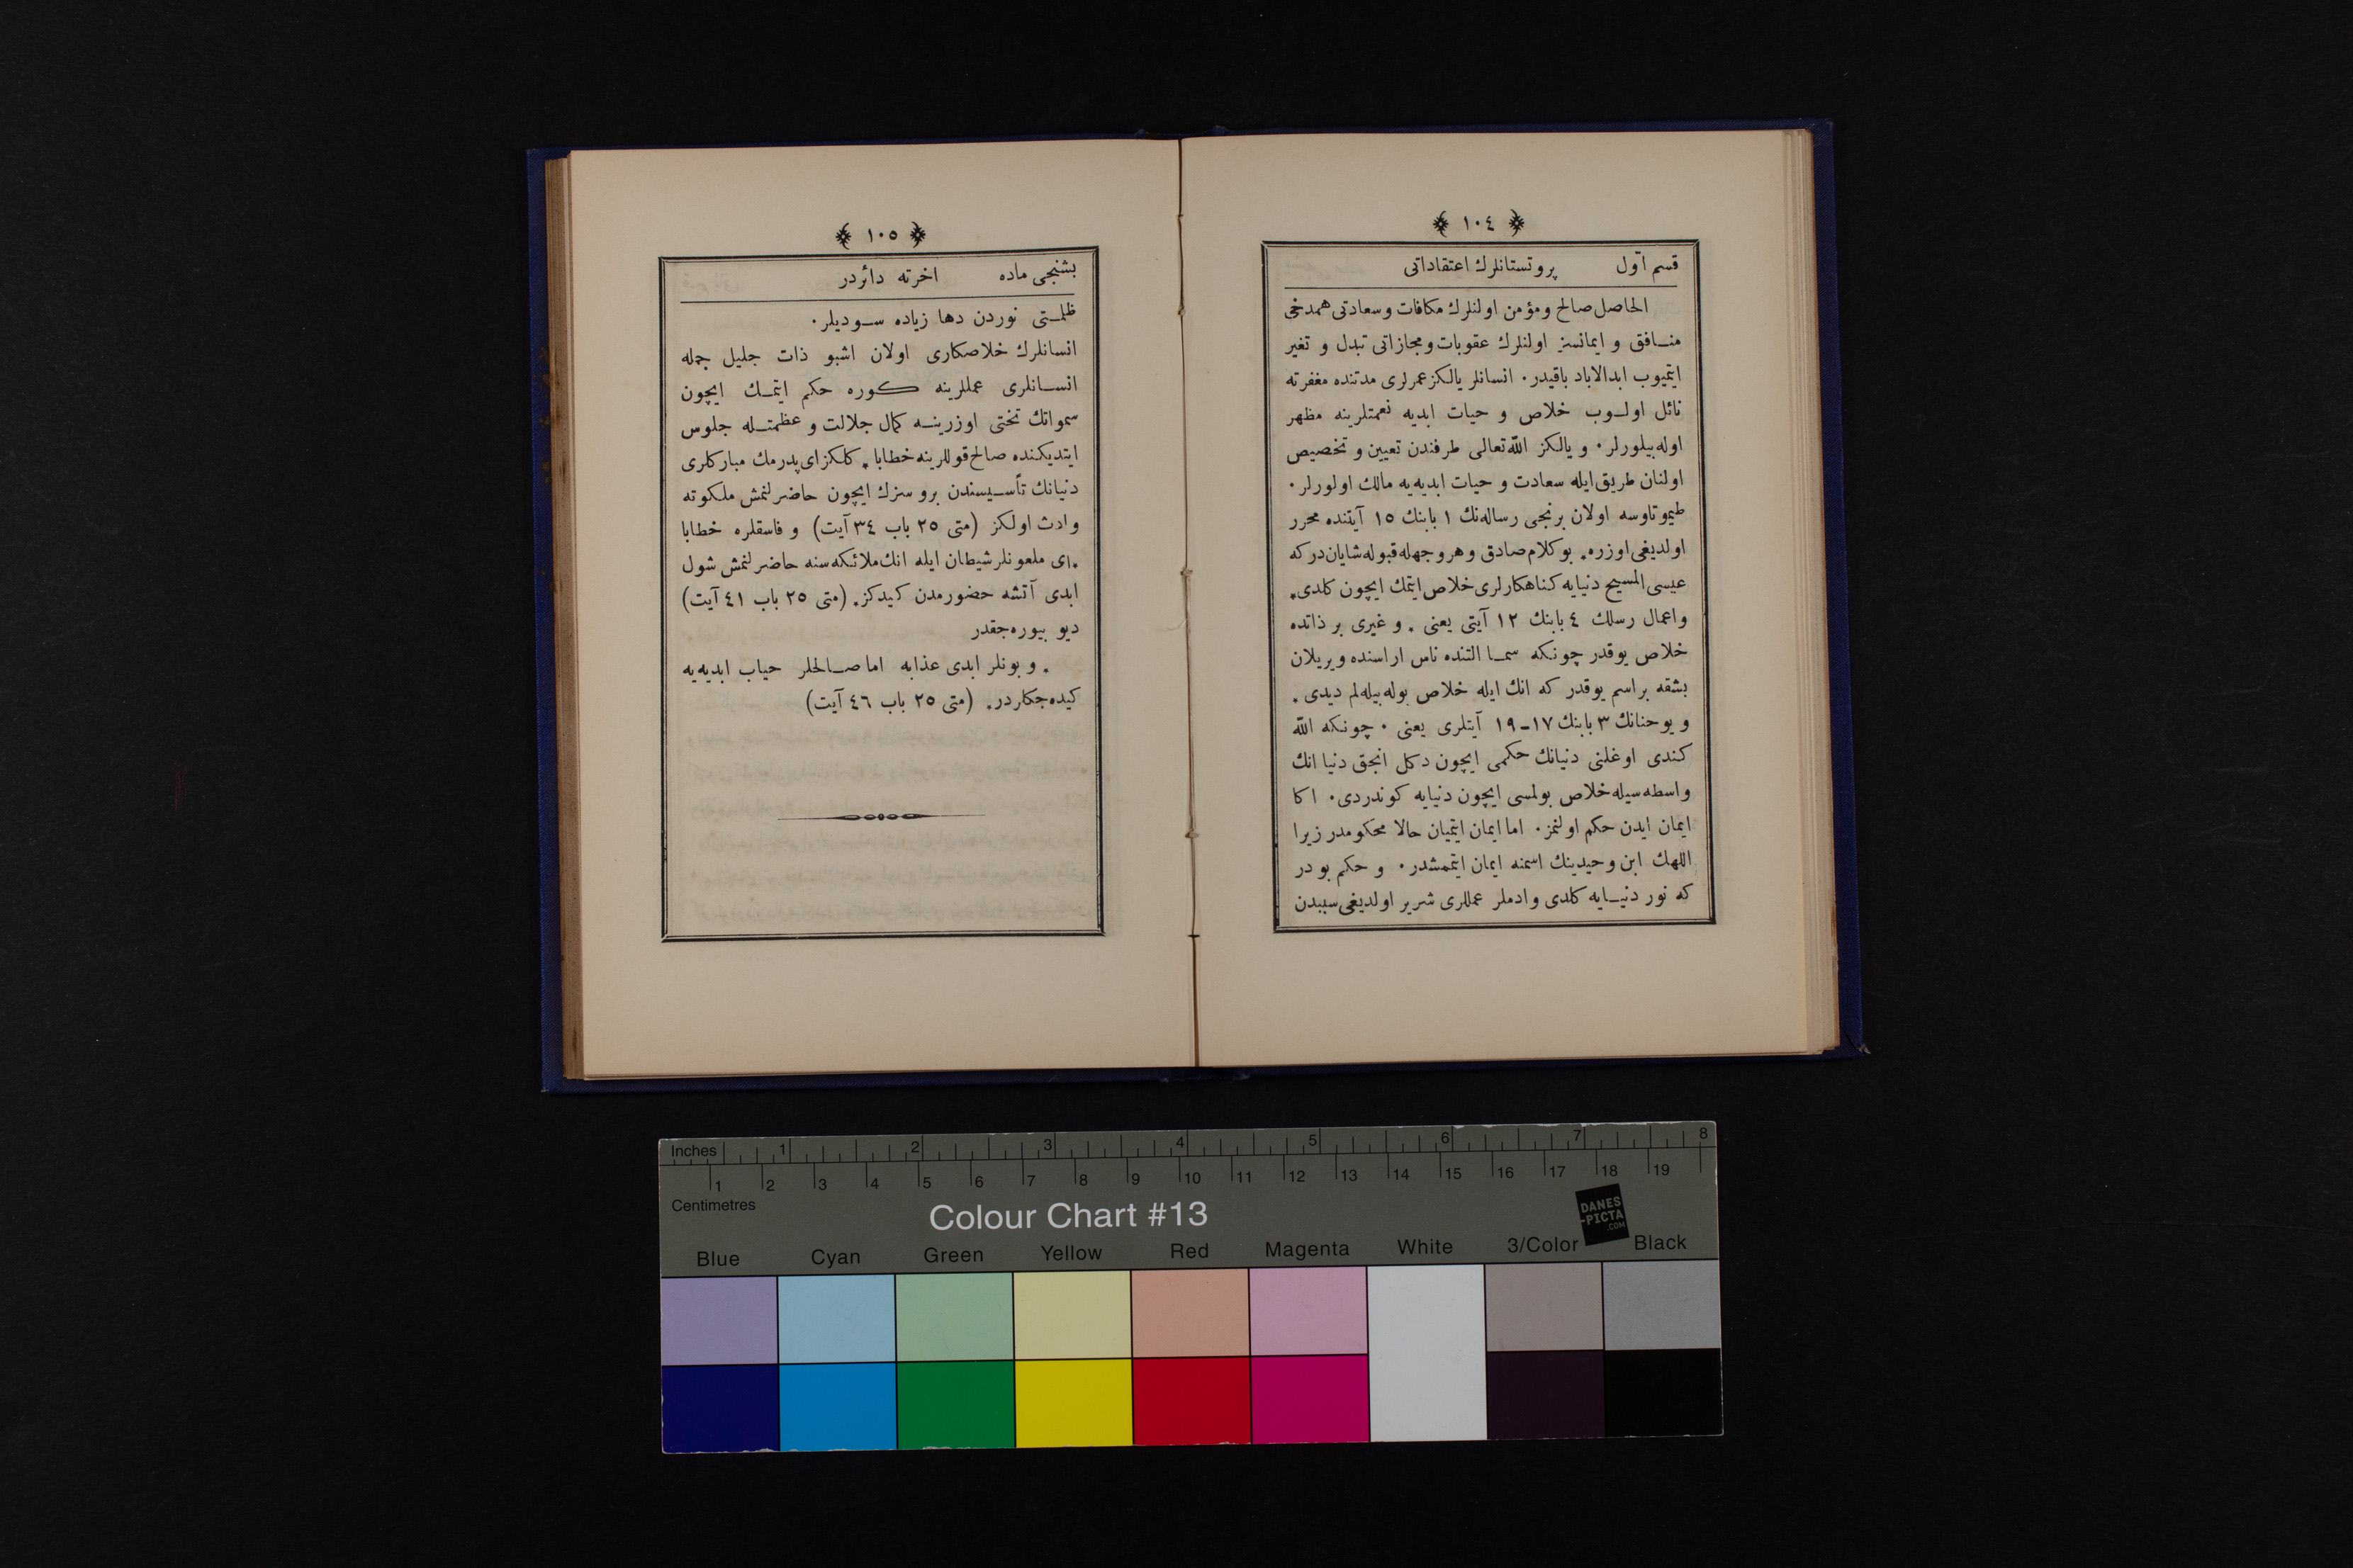 ﴿ ١٠٤ ﴾
قسم اوّل پروتستانلرك اعتقاداتى
الحاصل صالح ومؤمن اولنلرك مكافات وسعادتى همدخى
منـافق و ايمانسز اولنلرك عقوبات ومجازاتى تبدل و تغير
ايتميوب ابدالاباد باقيدر · انسانلر يالكز عمرلرى مدتنده مغفرته
نائل اولـوب خلاص و حيات ابديه نعمتلرينه مظهر
اوله بيلورلر · و يالكز الله تعالى طرفندن تعيين و تخصيص
اولنان طريق ايله سعادت و حيات ابديه يه مالك اولورلر ·
طيموتاوسه اولان برنجى رساله نك ١ بابنك ١٥ آيتنده محرر
اولديغى اوزره ٭ بو كلام صادق وهر وجهله قبوله شاياندر كه
عيسى المسيح دنيايه كناهكارلرى خلاص ايتمك ايچون كلدى ٭
واعمال رسلك ٤ بابنك ١٢ آيتى يعنى ٭ و غيرى بر ذاتده
خلاص يوقدر چونكه سمـا التنده ناس اراسنده ويريلان
بشقه بر اسم يوقدر كه انك ايله خلاص بوله بيله لم ديدى ٭
و يوحنانك ٣ بابنك ١٧ـ١٩ آيتلرى يعنى · چونكه الله
كندى اوغلنى دنيانك حكمى ايچون دكل انجق دنيا انك
واسطه سيله خلاص بولمسى ايچون دنيايه كوندردى · اكا
ايمان ايدن حكم اولنمز · اما ايمان ايتميان حالا محكومدر زيرا
اللهك ابن وحيدينك اسمنه ايمان ايتممشدر · و حكم بودر
كه نور دنيـايه كلدى وادملر عمللرى شرير اولديغى سببدن
﴿ ١٠٥ ﴾
بشنجى ماده اخرته دائردر
ظلمـتى نوردن دها زياده سـوديلر ·
انسانلرك خلاصكارى اولان اشبو ذات جليل جمله
انسـانلرى عمللرينه كوره حكم ايتمـك ايچون
سمواتك تختى اوزرينـه كمال جلالت و عظمتـله جلوس
ايتديكنده صالح قوللرينه خطابا ٭ كلكز اى پدرمك مباركلرى
دنيانك تأسـيسندن برو سزك ايچون حاضرلنمش ملكوته
وارث اولكز (متى ٢٥ باب ٣٤ آيت) و فاسقلره خطابا
٭ اى ملعونلر شيطان ايله انك ملائكه سنه حاضرلنمش شول
ابدى آتشه حضورمدن كيدكز ٭ (متى ٢٥ باب ٤١ آيت)
ديو بيوره جقدر
٭ و بونلر ابدى عذابه اما صـالحلر حياب ابديه يه
كيده جكلردر ٭ (متى ٢٥ باب ٤٦ آيت)
Inches 1 2 3 4 5 6 7 8
1 2 3 4 5 6 7 8 9 10 11 12 13 14 15 16 17 18 19
Centimetres
Colour Chart #13
DANES
-PICTA
.COM
Blue Cyan Green Yellow Red Magenta White 3/Color Black